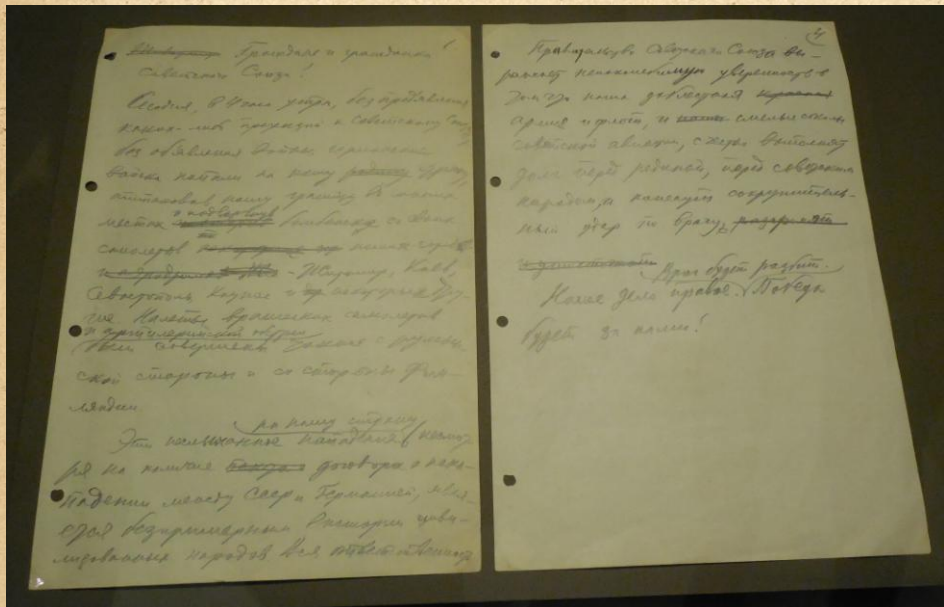 Граждане и гражданки
Советского Союза!
Сегодня, в 4 часа утра, без предъявления
каких-либо претензий к Советскому Союзу
без объявления войны, германские
войска напали на нашу страну,
атаковали нашу границу во многих
местах и подвергли бомбежке со своих
самолетов наши города
- Житомир, Киев,
Севастополь, Каунас и некоторые дру-
гие. Налеты вражеских самолетов
и артиллерийский обстрел
были совершены также с румын-
ской стороны и со стороны Фин-
ляндии.
на нашу страну
Это неслыханное нападение, несмот-
ря на наличие договора о нена-
падении между СССР и Германией, явля-
ется беспримерным в истории циви-
лизованных народов. Вся ответственность
4
Правительство Советского Союза вы-
ражает непоколебимую уверенность в
том, что наша доблестная
армия и флот, и смелые соколы
советской авиации, с честью выполнят
долг перед родиной, перед советским
народом, и нанесут сокрушитель-
ный удар по врагу.
Враг будет разбит.
Наше дело правое. Победа
будет за нами!